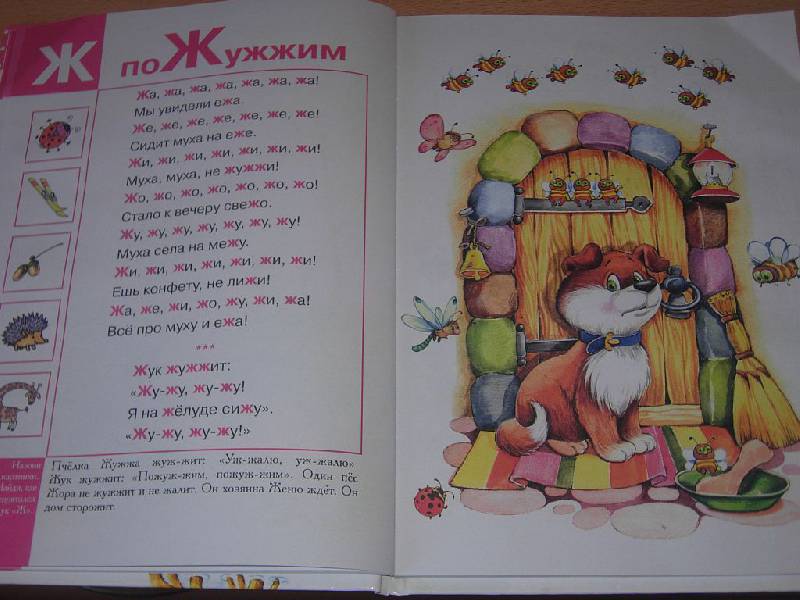 Ж
поЖужжим
Жа, жа, жа, жа, жа, жа, жа!
Мы увидели ежа.
Же, же, же, же, же, же, же!
Сидит муха на еже.
Жи, жи, жи, жи, жи, жи, жи!
Муха, муха, не жужжи!
Жо, жо, жо, жо, жо, жо, жо!
Стало к вечеру свежо.
Жу, жу, жу, жу, жу, жу, жу!
Муха села на межу.
Жи, жи, жи, жи, жи, жи, жи!
Ешь конфету, не лижи!
Жа, же, жи, жо, жу, жи, жа!
Всё про муху и ежа!
***
Жук жужжит:
«Жу-жу, жу-жу!
Я на жёлуде сижу».
«Жу-жу, жу-жу!»
Назови
Найди, где
ук «Ж».
Пчёлка Жужжа жуж-жит: «Уж-жалю, уж-жалю»
Жук жужжит: «Пожуж-жим, пожуж-жим». Один пёс
Жора не жужжит и не жалит. Он хозяина Женю ждёт. Он
дом сторожит.